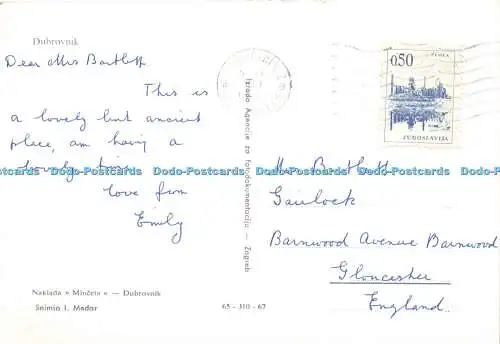 Dubrovnik
Dear Mrs Bartlett
This is
a lovely but ancient
place, am having a
lovely time
love from
Emily
Naklada » Minčeta « — Dubrovnik
Snimio I. Medar
Izrada Agencije za fotodokumentaciju — Zagreb
65 - 310 - 67
0,50
JUGOSLAVIJA
Bartlett
Barnwood Avenue Barnwood
Gloucester
England.
Dodo-Postcards Dodo-Postcards Dodo-Postcards Dodo-Postcards